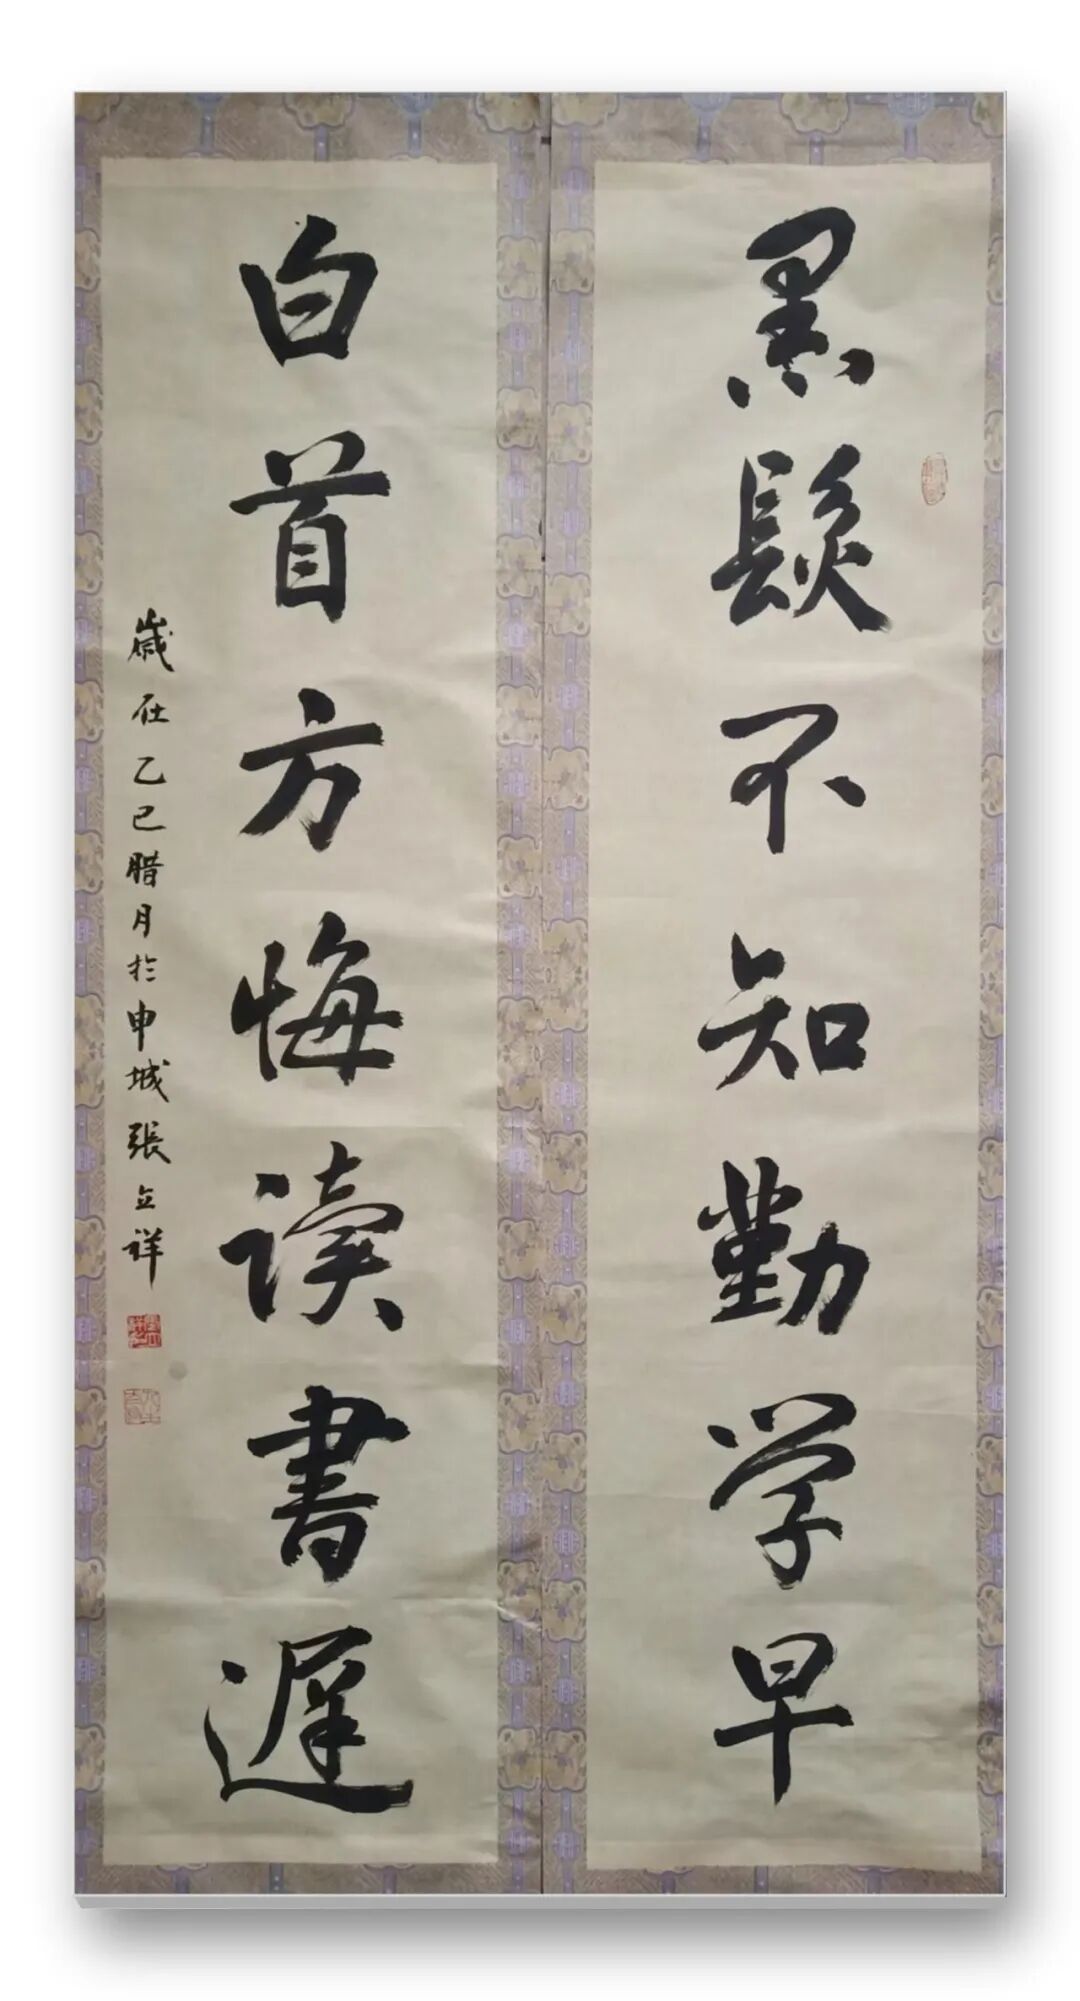 黑髮不知勤学早
白首方悔读書遲
歲在乙巳腊月於申城張立祥